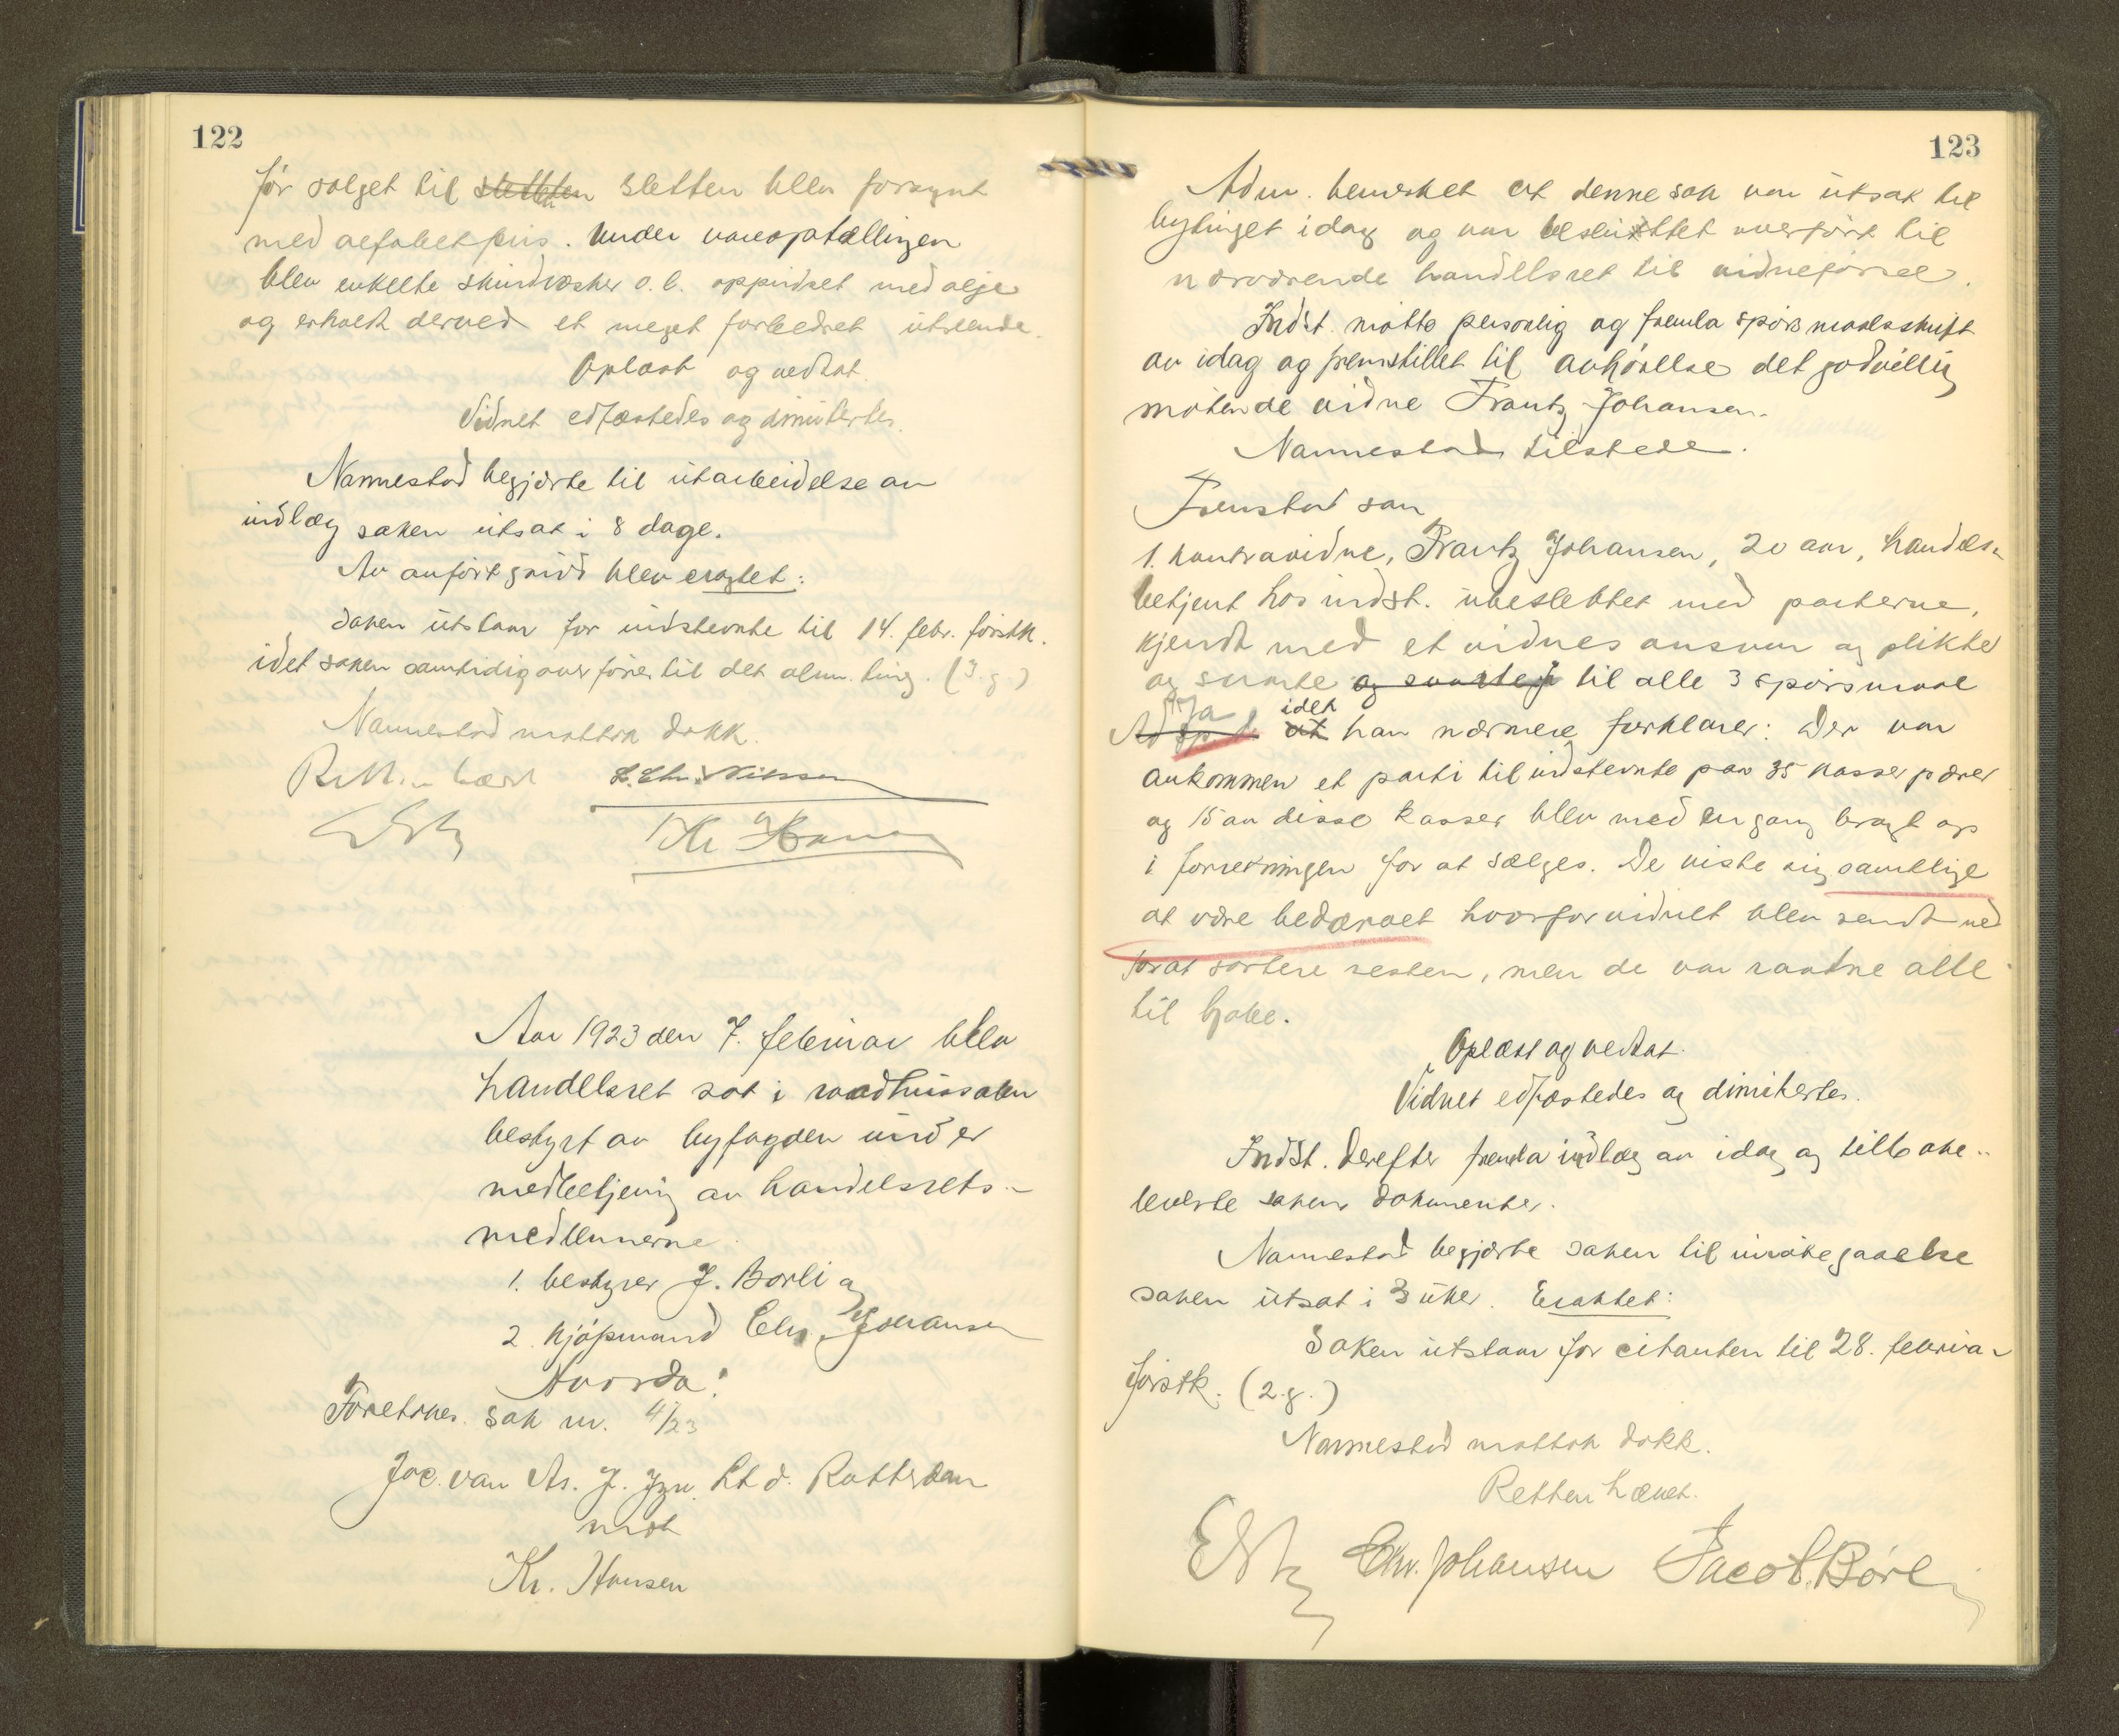 122
før salget til sletten Sletten blev forsynt
med alfabetpris. Under vareoptællingen
blev enkelte skindvæsker o.l. oppudset med olje
og erholdt derved et meget forbedret utseende.
Oplæst og vedtat.
Vidnet edfæstedes og dimitertes.
Nannestad begjærte til utarbeidelse av
indlæg saken utsat i 8 dage.
Av anført grund blev eragtet:
Saken utstaar for indstevnte til 14. febr. førstk.
idet saken samtidig overføres til det alm. ting. (3. g.)
Nannestad mottok dokk.
Retten hævet
L. Chr. Nilssen
Kr
Aar 1923 den 7. februar blev
handelsret sat i raadhussalen
bestyrt av byfogden under
medbetjening av handelsrets-
medlemmerne
1. bestyrer J. Børli og
2. kjøpmand Chr. Johansen
Hvorda:
Foretokes sak nr. 4/23
Jac. van As. J. Jzn. Ltd. Rotterdam
mot
Kr. Hansen
123
Adm. bemerket at denne sak var utsat til
bytinget idag og var besluttet overført til
nærværende handelsret til vidneførsel.
Indst. møtte personlig og fremla spørsmaalsskrift
av idag og fremstillet til avhørelse det godvillig
møtende vidne Frantz Johansen.
Nannestad tilstede.
Fremstod som
1. kontravidne, Frantz Johansen, 20 aar, handels-
betjent hos indst. ubeslektet med parterne,
kjendt med et vidnes ansvar og plikter
og svarte og svarte ja til alle 3 spørsmaal
Ja idet
Ad sp. 1. at han nærmere forklarer: Der var
ankommen et parti til indstevnte paa 35 kasser pærer
og 15 av disse kasser blev med en gang bragt op
i forretningen for at sælges. De viste sig samtlige
at være bedærvet hvorfor vidnet blev sendt ned
for at sortere resten, men de var raatne alle
til hobe.
Oplæst og vedtat.
Vidnet edfæstedes og dimitertes.
Indst. derefter fremla indlæg av idag og tilbake-
leverte sakens dokumenter.
Nannestad begjærte saken til imøtegaaelse
saken utsat i 3 uker. Eraktet:
Saken utstaar for citanten til 28. februar
førstk. (2. g.)
Nannestad mottok dokk.
Retten hævet.
Chr. Johansen Jacob Børli